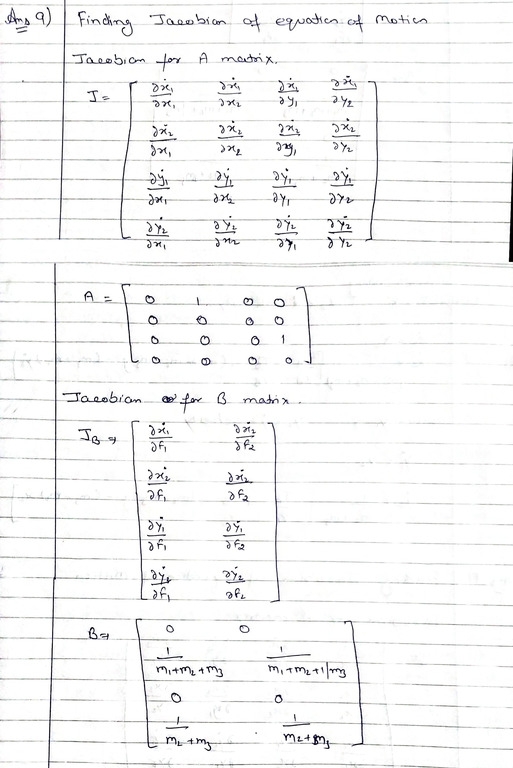 Ans 9) Finding Jacobian of equation of motion
Jacobian for A matrix.
J = [ ∂ẋ₁/∂x₁ ∂ẋ₁/∂x₂ ∂ẋ₁/∂y₁ ∂ẋ₁/∂y₂
∂ẋ₂/∂x₁ ∂ẋ₂/∂x₂ ∂ẋ₂/∂y₁ ∂ẋ₂/∂y₂
∂ẏ₁/∂x₁ ∂ẏ₁/∂x₂ ∂ẏ₁/∂y₁ ∂ẏ₁/∂y₂
∂ẏ₂/∂x₁ ∂ẏ₂/∂x₂ ∂ẏ₂/∂y₁ ∂ẏ₂/∂y₂ ]
A = [ 0 1 0 0
0 0 0 0
0 0 0 1
0 0 0 0 ]
Jacobian for B matrix.
J_B → [ ∂ẋ₁/∂F₁ ∂ẋ₂/∂F₂
∂ẋ₂/∂F₁ ∂ẋ₂/∂F₂
∂ẏ₁/∂F₁ ∂ẏ₁/∂F₂
∂ẏ₂/∂F₁ ∂ẏ₂/∂F₂ ]
B → [ 0 0
1/m₁+m₂+m₃ 1/m₁+m₂+1/m₃
0 0
1/m₂+m₃ 1/m₂+m₃ ]